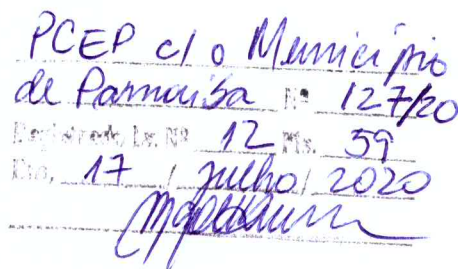 PCEP c/ o Município
de Parnaíba Nº 127/20
Registrado Lv. Nº 12 Fls. 59
Em, 17 / julho / 2020